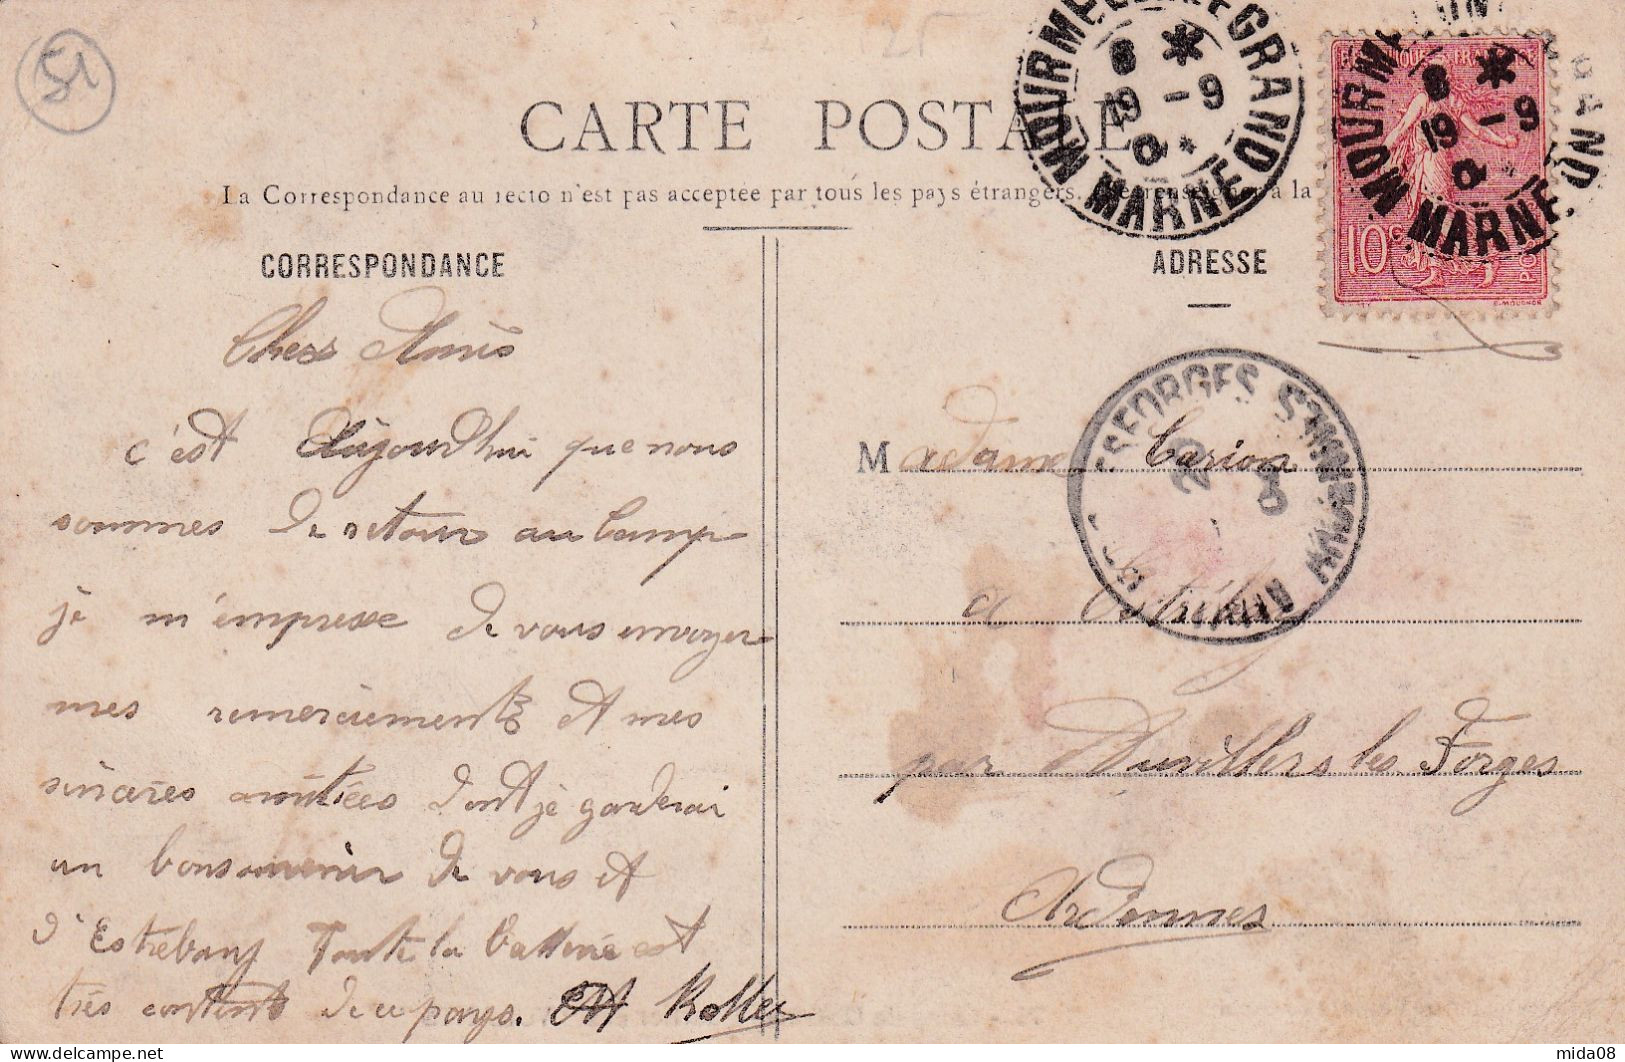 51
CARTE POSTALE
La Correspondance au recto n'est pas acceptée par tous les pays étrangers. (Se renseigner à la
MOURMELON-LE-GRAND
8 * 19 -9
MARNE
MOURM
8 * 19 -9
MARNE
10c
E. MOUCHON
CORRESPONDANCE
ADRESSE
Chers Amis
c'est Aujourd'hui que nous
sommes de retour au Camp
je m'empresse de vous envoyer
mes remerciements et mes
sincères amitiées dont je garderai
un bon souvenir de vous et
d'Estrebay Toute la batterie est
très contente de ce pays. Koller
Madame Carion
a
par Auvillers les Forges
Ardennes
mida08